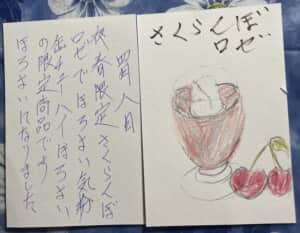 さくらんぼ
ロゼ
四人目
春限定さくらんぼ
ロゼでほろよい気
缶チューハイほろよい
の限定商品です
ほろよいになりました